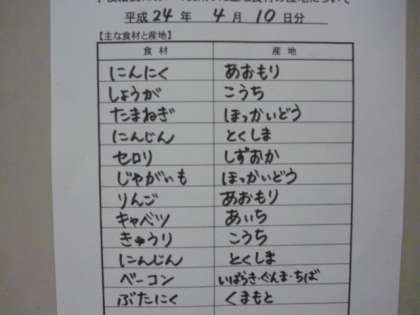 平成24年 4月10日分
【主な食材と産地】
食材 産地
にんにく あおもり
しょうが こうち
たまねぎ ほっかいどう
にんじん とくしま
セロリ しずおか
じゃがいも ほっかいどう
りんご あおもり
キャベツ あいち
きゅうり こうち
にんじん とくしま
ベーコン いばらき・ぐんま・ちば
ぶたにく くまもと